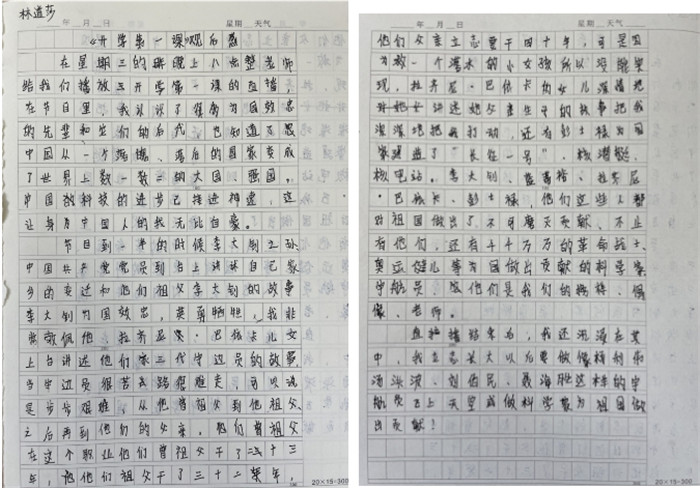 林道莎
年 月 日 星期 天气
《开学第一课》观后感
在星期三的晚上八点整老师
给我们播放了开学第一课的直播，
在节目里，我认识了很多为国效忠
的先辈和他们的后代，也知道了
中国从一个落后的国家变成
了世界上数一数二的大国强国。
中国的科技的进步已接近神速，这
让身为中国人的我无比自豪。
节目到一半的时候李大钊之孙
中国共产党党员到台上讲述自己家
乡的变迁和他们祖父李大钊的故事
李大钊为国效忠，英勇牺牲，我非
常敬佩他，拉齐尼·巴依卡儿女
上台讲述他们家三代守边员的故事，
当守边员很苦路很难走，可以说
是步步艰难，从他曾祖父到他祖父，
之后再到他们的父亲。他们曾祖父
在这个职业他们曾祖父干了二十三
年，他们祖父干了三十二年，
20×15=300
年 月 日 星期 天气
他们父亲立志要干四十年，可是因
为救一个落水的小女孩所以没能实
现，拉齐尼·巴依卡的女儿深情地
讲述她父亲生下的故事把我
深深地把打动，还有彭士禄为国
家建造了“长征一号”，核潜艇，
核电站。李大钊、拉齐尼
·巴依卡、彭士禄，他们这些人都
对祖国做出了不可磨灭贡献，不止
有他们，还有千千万万的革命战士，
奥运健儿等为国做出贡献的科学家
宇航员，他们是我们的榜样、偶
像、老师。
直播结束后，我还沉浸在其
中，我立志长大以后要做像
汤洪波、刘伯明、聂海胜这样的宇
航员飞上天空或做科学家为祖国做
出贡献！
20×15=300